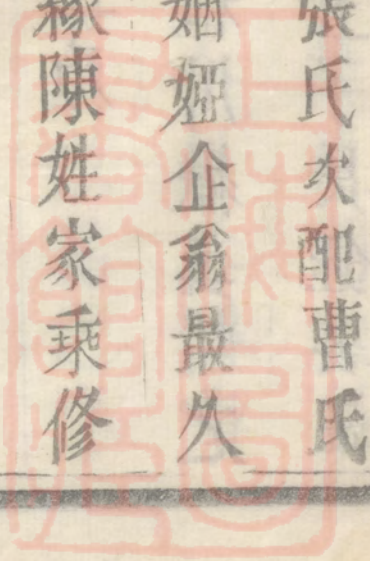 張氏次配曹氏
姻婭企翁最久
緣陳姓家乘修